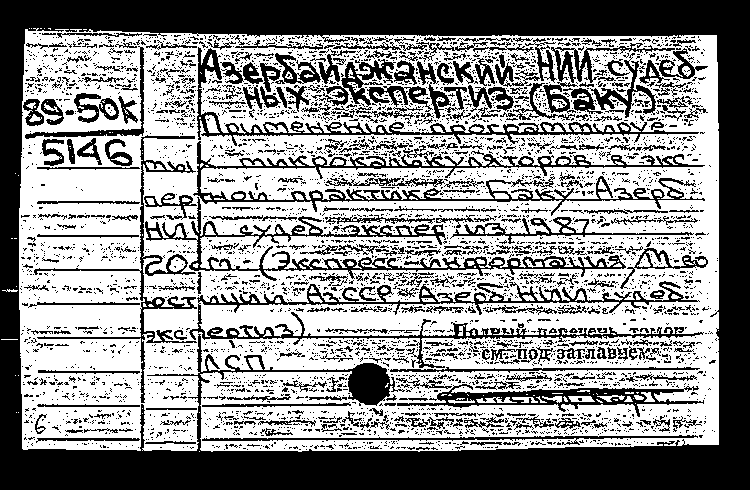 Азербайджанский НИИ судеб-
ных экспертиз (Баку).
89-50К
5146
Применение программируе-
мых микрокалькуляторов в экс-
пертной практике. - Баку: Азерб.
НИИ судеб. экспертиз, 1987.
20 см. - (Экспресс-информация / М-во
юстиции АзССР, Азерб. НИИ судеб.
экспертиз).
Полный перечень томов
см. под заглавием
ДСП.
6